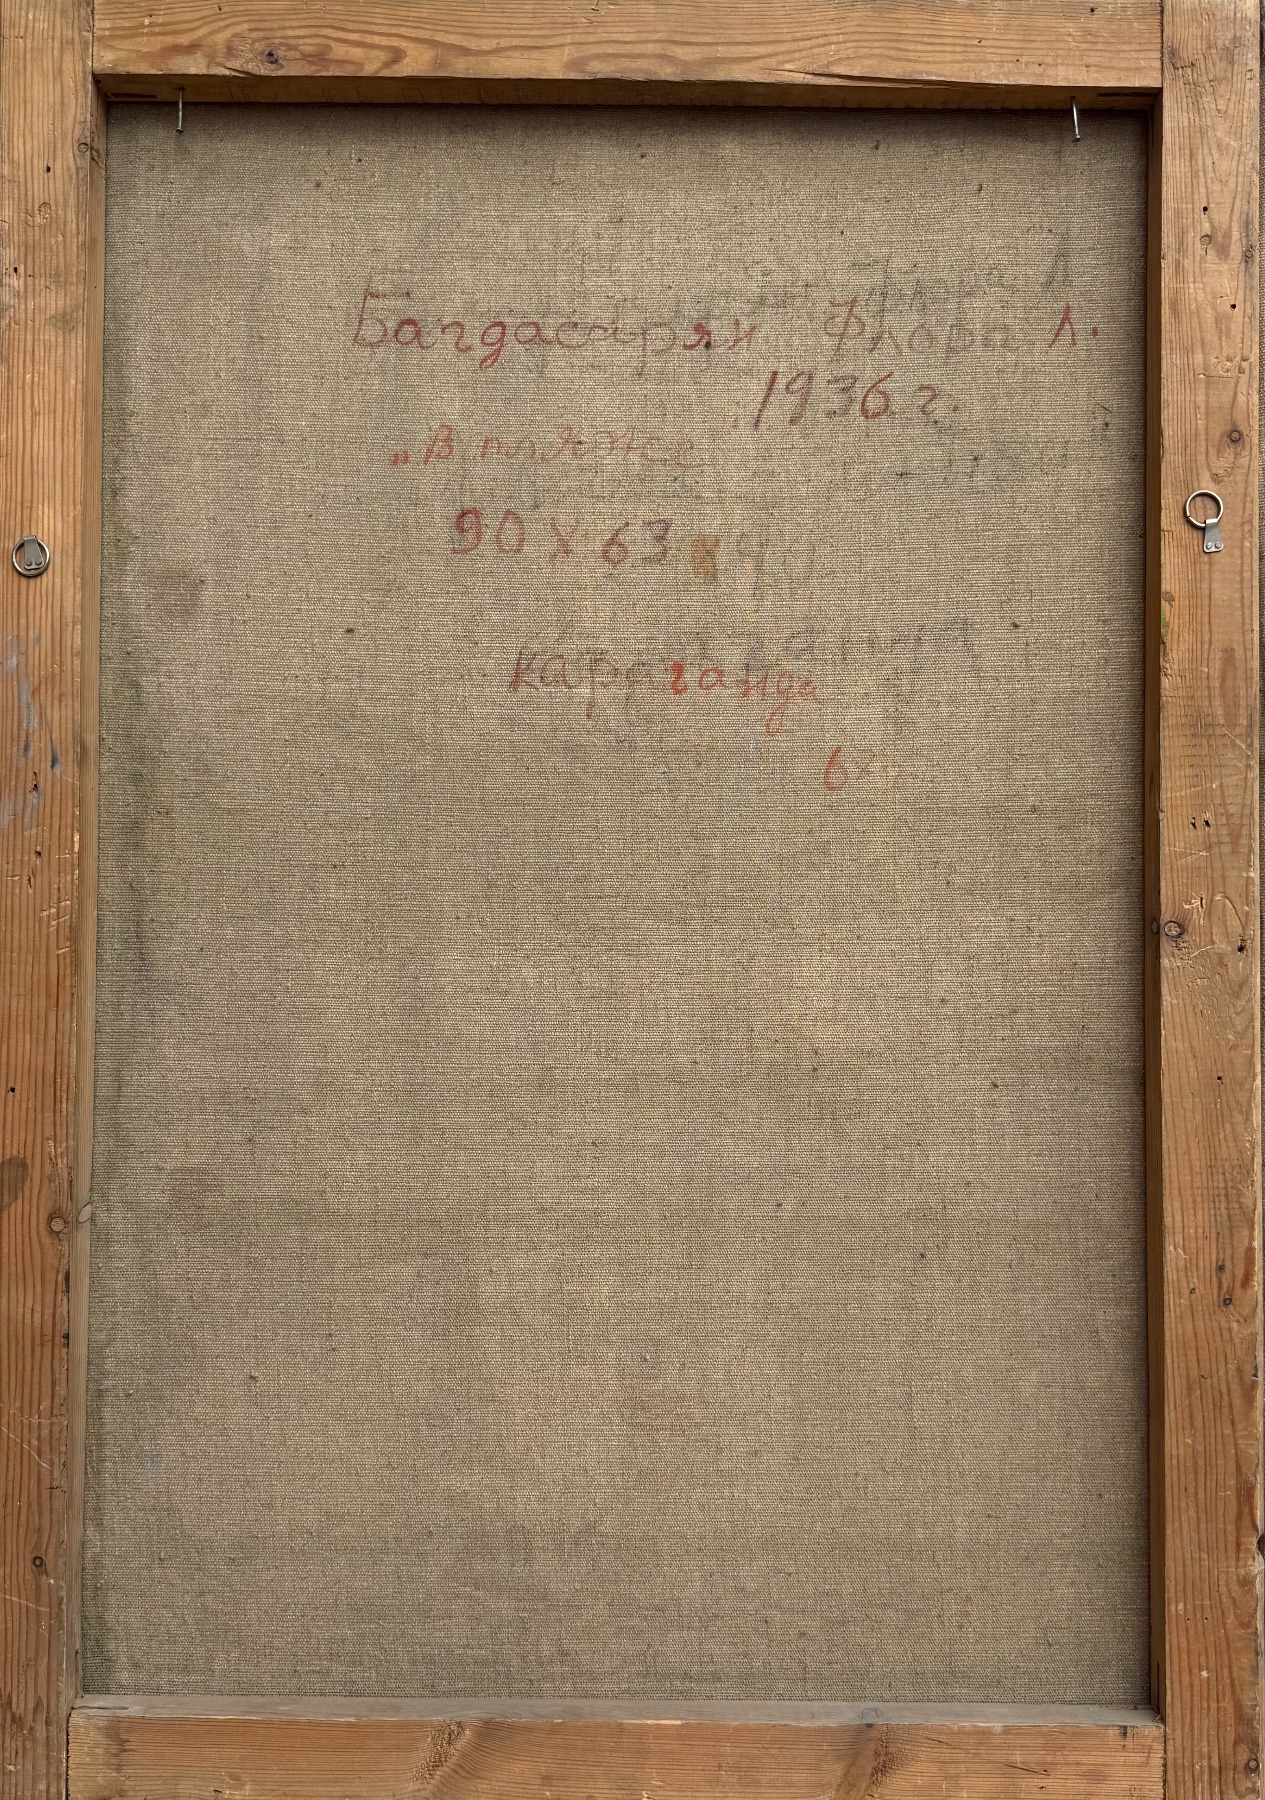 Багдасарян Флора Л.
1936 г.
„В пляже
90 х 63
караганда
67